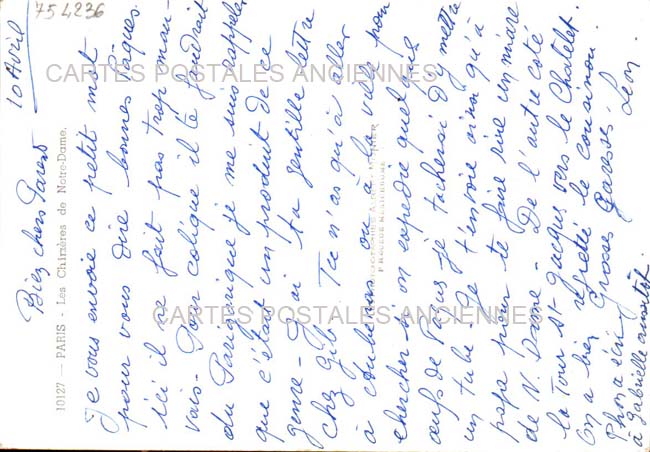 754236
10 Avril
Biez chers Parents
Je vous envoie ce petit mot
pour vous dire bonnes Pâques.
ici il ne fait pas trop mau-
vais - Pour colique il te faudrait
du Parégorique je me suis rappeler
que c'était un produit de ce
genre - J'ai eu ta gentille lettre
chez Gilb. Tu n'as qu'à aller
à Aubenas ou à la ville pour
chercher si on expédie quelques
œufs de Pâques je tacherai d'y mettre
un tube - Je t'envoie ainsi qu'à
papa pour te faire rire un miare
de N. Dame - De l'autre coté
la Tour St Jacques vers le Chatelet.
On a bien regretté le cousinou.
Grosses Caresses. Leon.
à Gabrielle aussitôt.
10127 — PARIS - Les Chimères de Notre-Dame.
CARTES POSTALES ANCIENNES
CARTES POSTALES ANCIENNES